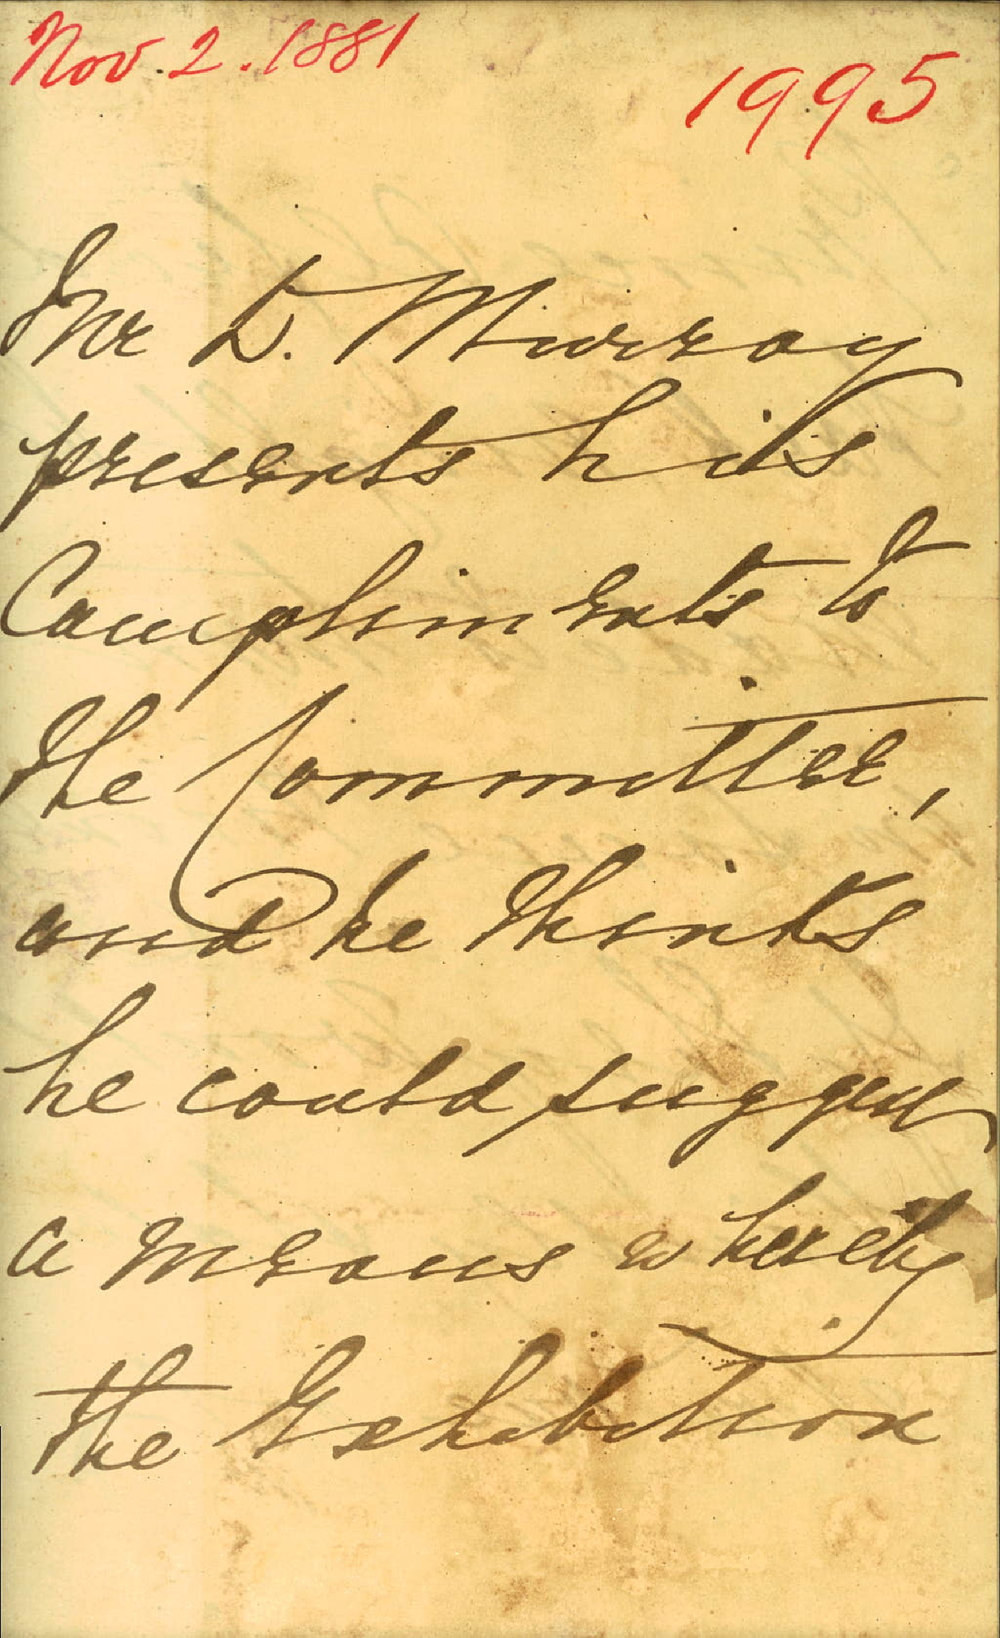 Nov. 2. 1881
1995
Mr D. Murray
presents his
Compliments to
the Committee,
and he thinks
he could suggest
a means whereby
the Exhibition